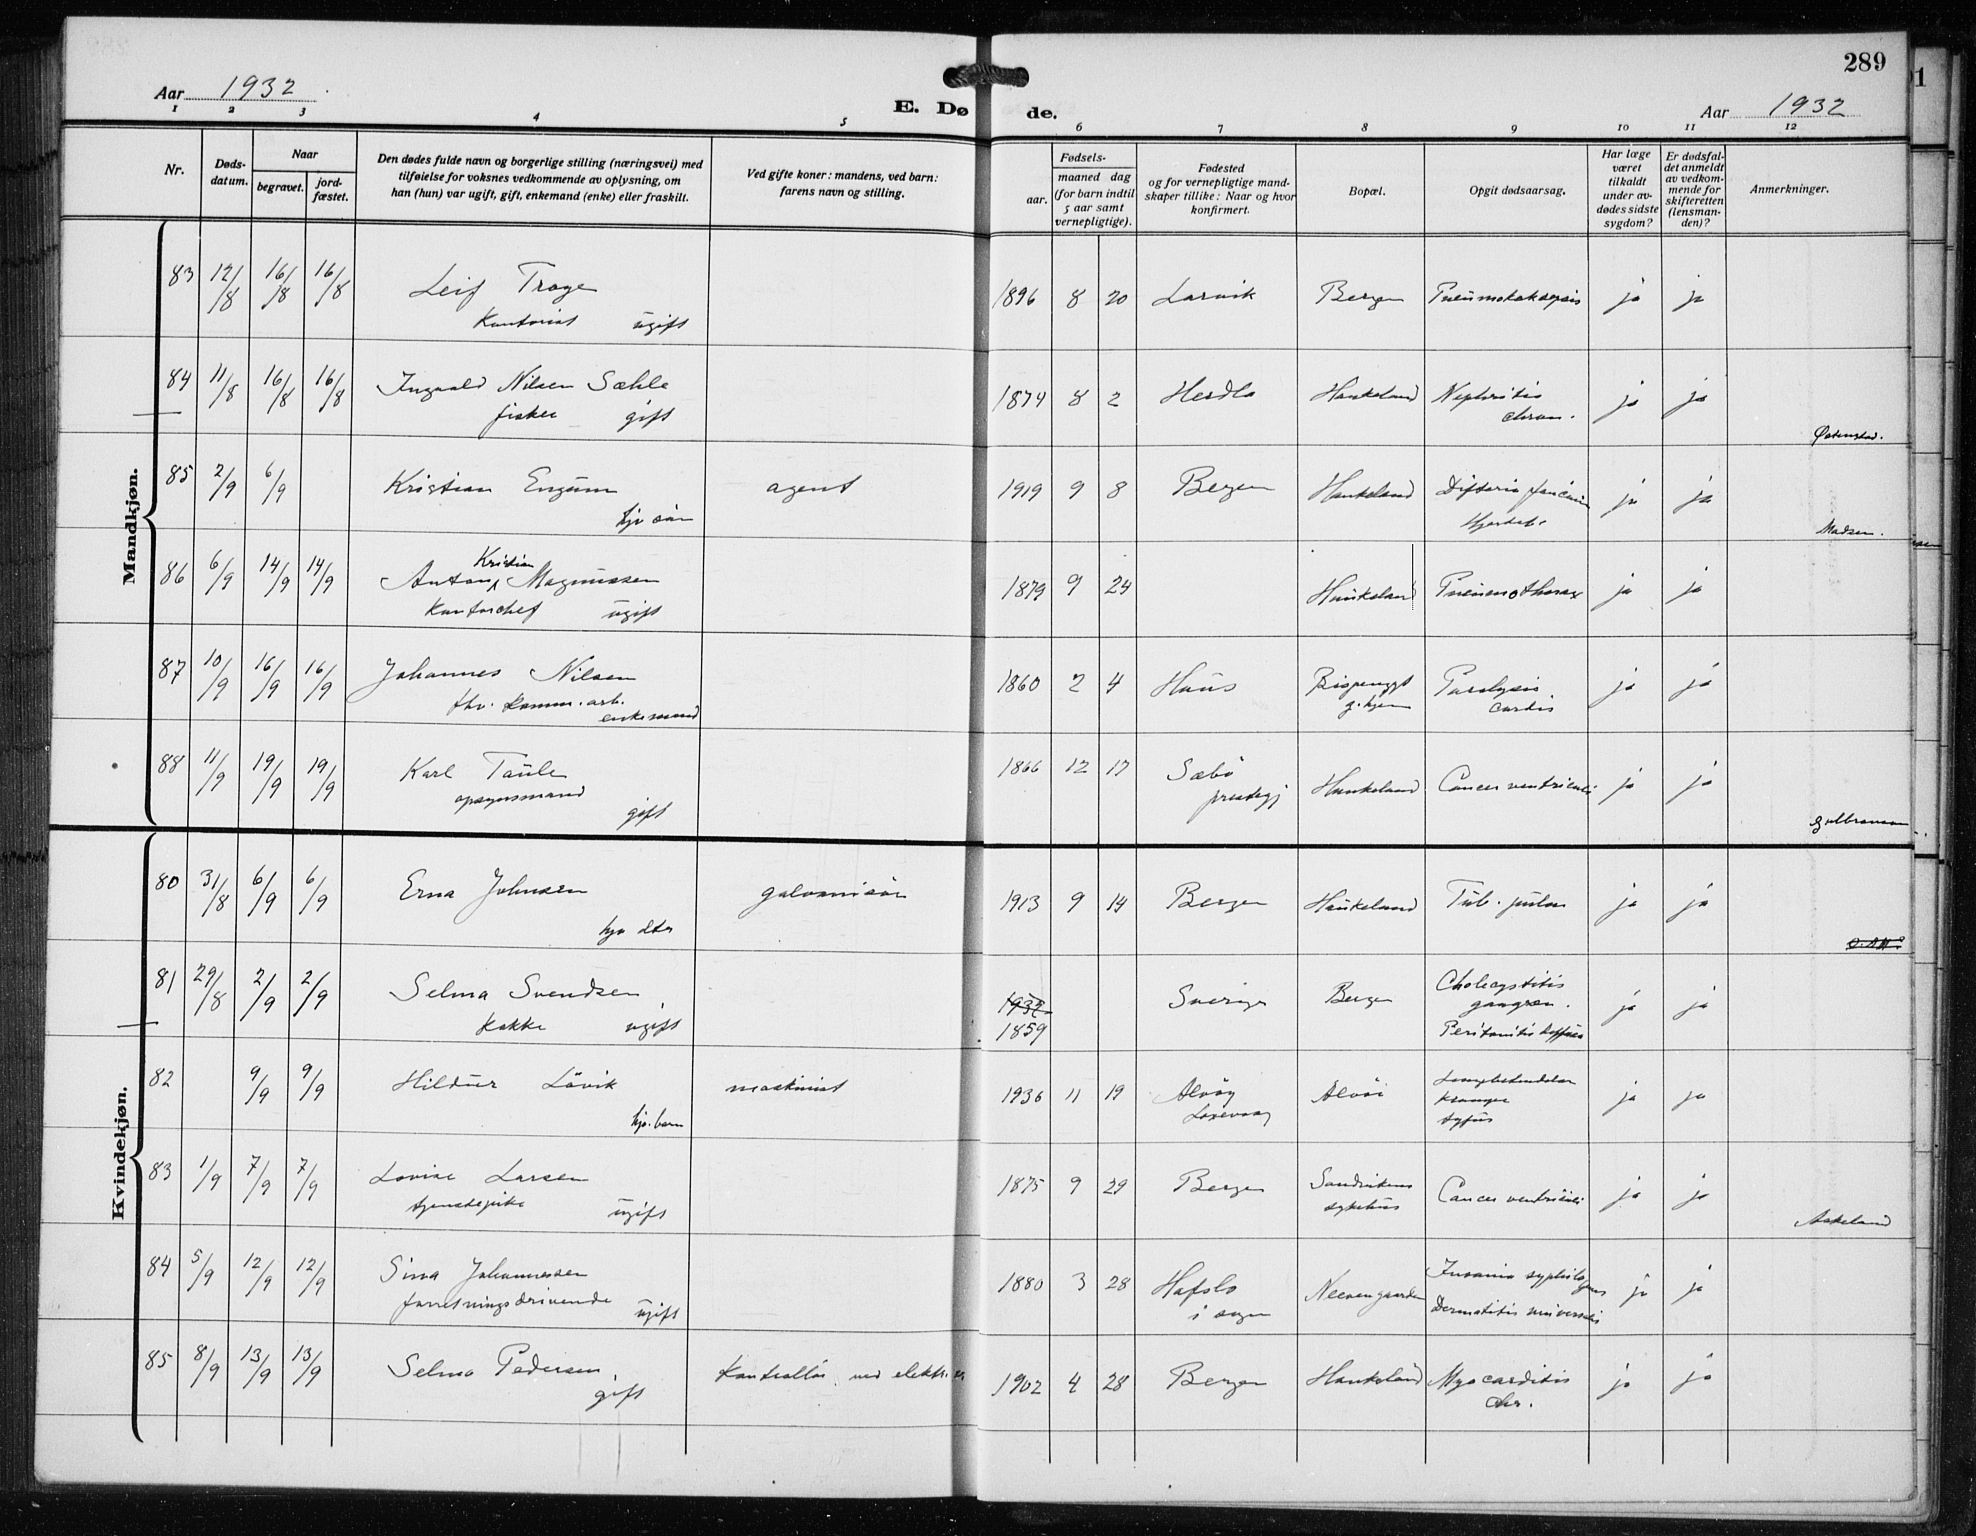 289
Aar 1932
E. Dø de.
Aar 1932
1 2 3 4 5 6 7 8 9 10 11 12
Nr.
Døds-datum.
Naar
begravet.
jord-fæstet.
Den dødes fulde navn og borgerlige stilling (næringsvei) med
tilføielse for voksnes vedkommende av oplysning, om
han (hun) var ugift, gift, enkemand (enke) eller fraskilt.
Ved gifte koner: mandens, ved barn:
farens navn og stilling.
Fødsels-
aar. maaned dag
(for barn indtil
5 aar samt
vernepligtige).
Fødested
og for vernepligtige mand-
skaper tillike: Naar og hvor
konfirmert.
Bopæl.
Opgit dødsaarsag.
Har læge
været
tilkaldt
under av-
dødes sidste
sygdom?
Er dødsfal-
det anmeldt
av vedkom-
mende for
skifteretten
(lensman-
den)?
Anmerkninger.
Mandkjøn.
83 12/8 16/8 16/8 Leif Troye 1896 8 20 Larvik Bergen ja ja
Kontorist ugift
84 11/8 16/8 16/8 Ingvald Nilsen Sæhle 1874 8 2 Herdla Haukeland Nephritis ja ja
fisker gift chron.
85 2/9 6/9 Kristian Engum agent 1919 9 8 Bergen Haukeland Difteria ja ja
sön
Madsen.
Kristian
86 6/9 14/9 14/9 Anton Magnussen 1879 9 24 Haukeland Pneumothorax ja ja
Kontorchef ugift
87 10/9 16/9 16/9 Johannes Nilsen 1860 2 4 Haus Paralysis ja ja
fhv. komm. arb. cordis
enkemand
88 11/9 19/9 19/9 Karl Taule 1866 12 17 Sæbö Haukeland Cancer ventriculi ja ja
opsynsmand prestegj
gift
Gulbransen
Kvindekjøn.
80 31/8 6/9 6/9 Erna Johnsen galvanisör 1913 9 14 Bergen Haukeland Tub. pulm ja ja
dtr
81 29/8 2/9 2/9 Selma Svendsen 1932 Sverige Bergen Cholecystitis ja ja
gangræn.
Kokke ugift 1859 Peritonitis diffusa
82 9/9 9/9 Hildur Lövik maskinist 1936 11 19 Alvöy Alvöi ja ja
barn
83 1/9 7/9 7/9 Lovise Larsen 1875 9 29 Bergen Sandvikens Cancer ventriculi ja ja
tjenestepike ugift sykehus
Askeland
84 5/9 12/9 12/9 Sina Johannessen 1880 3 28 Hafslo Neevengaarden Insania ja ja
forretningsdrivende ugift i sogn Dermatitis universalis
85 8/9 13/9 13/9 Selma Pedersen Kontrollör ved 1902 4 28 Bergen Haukeland Myocarditis ja ja
gift chr.